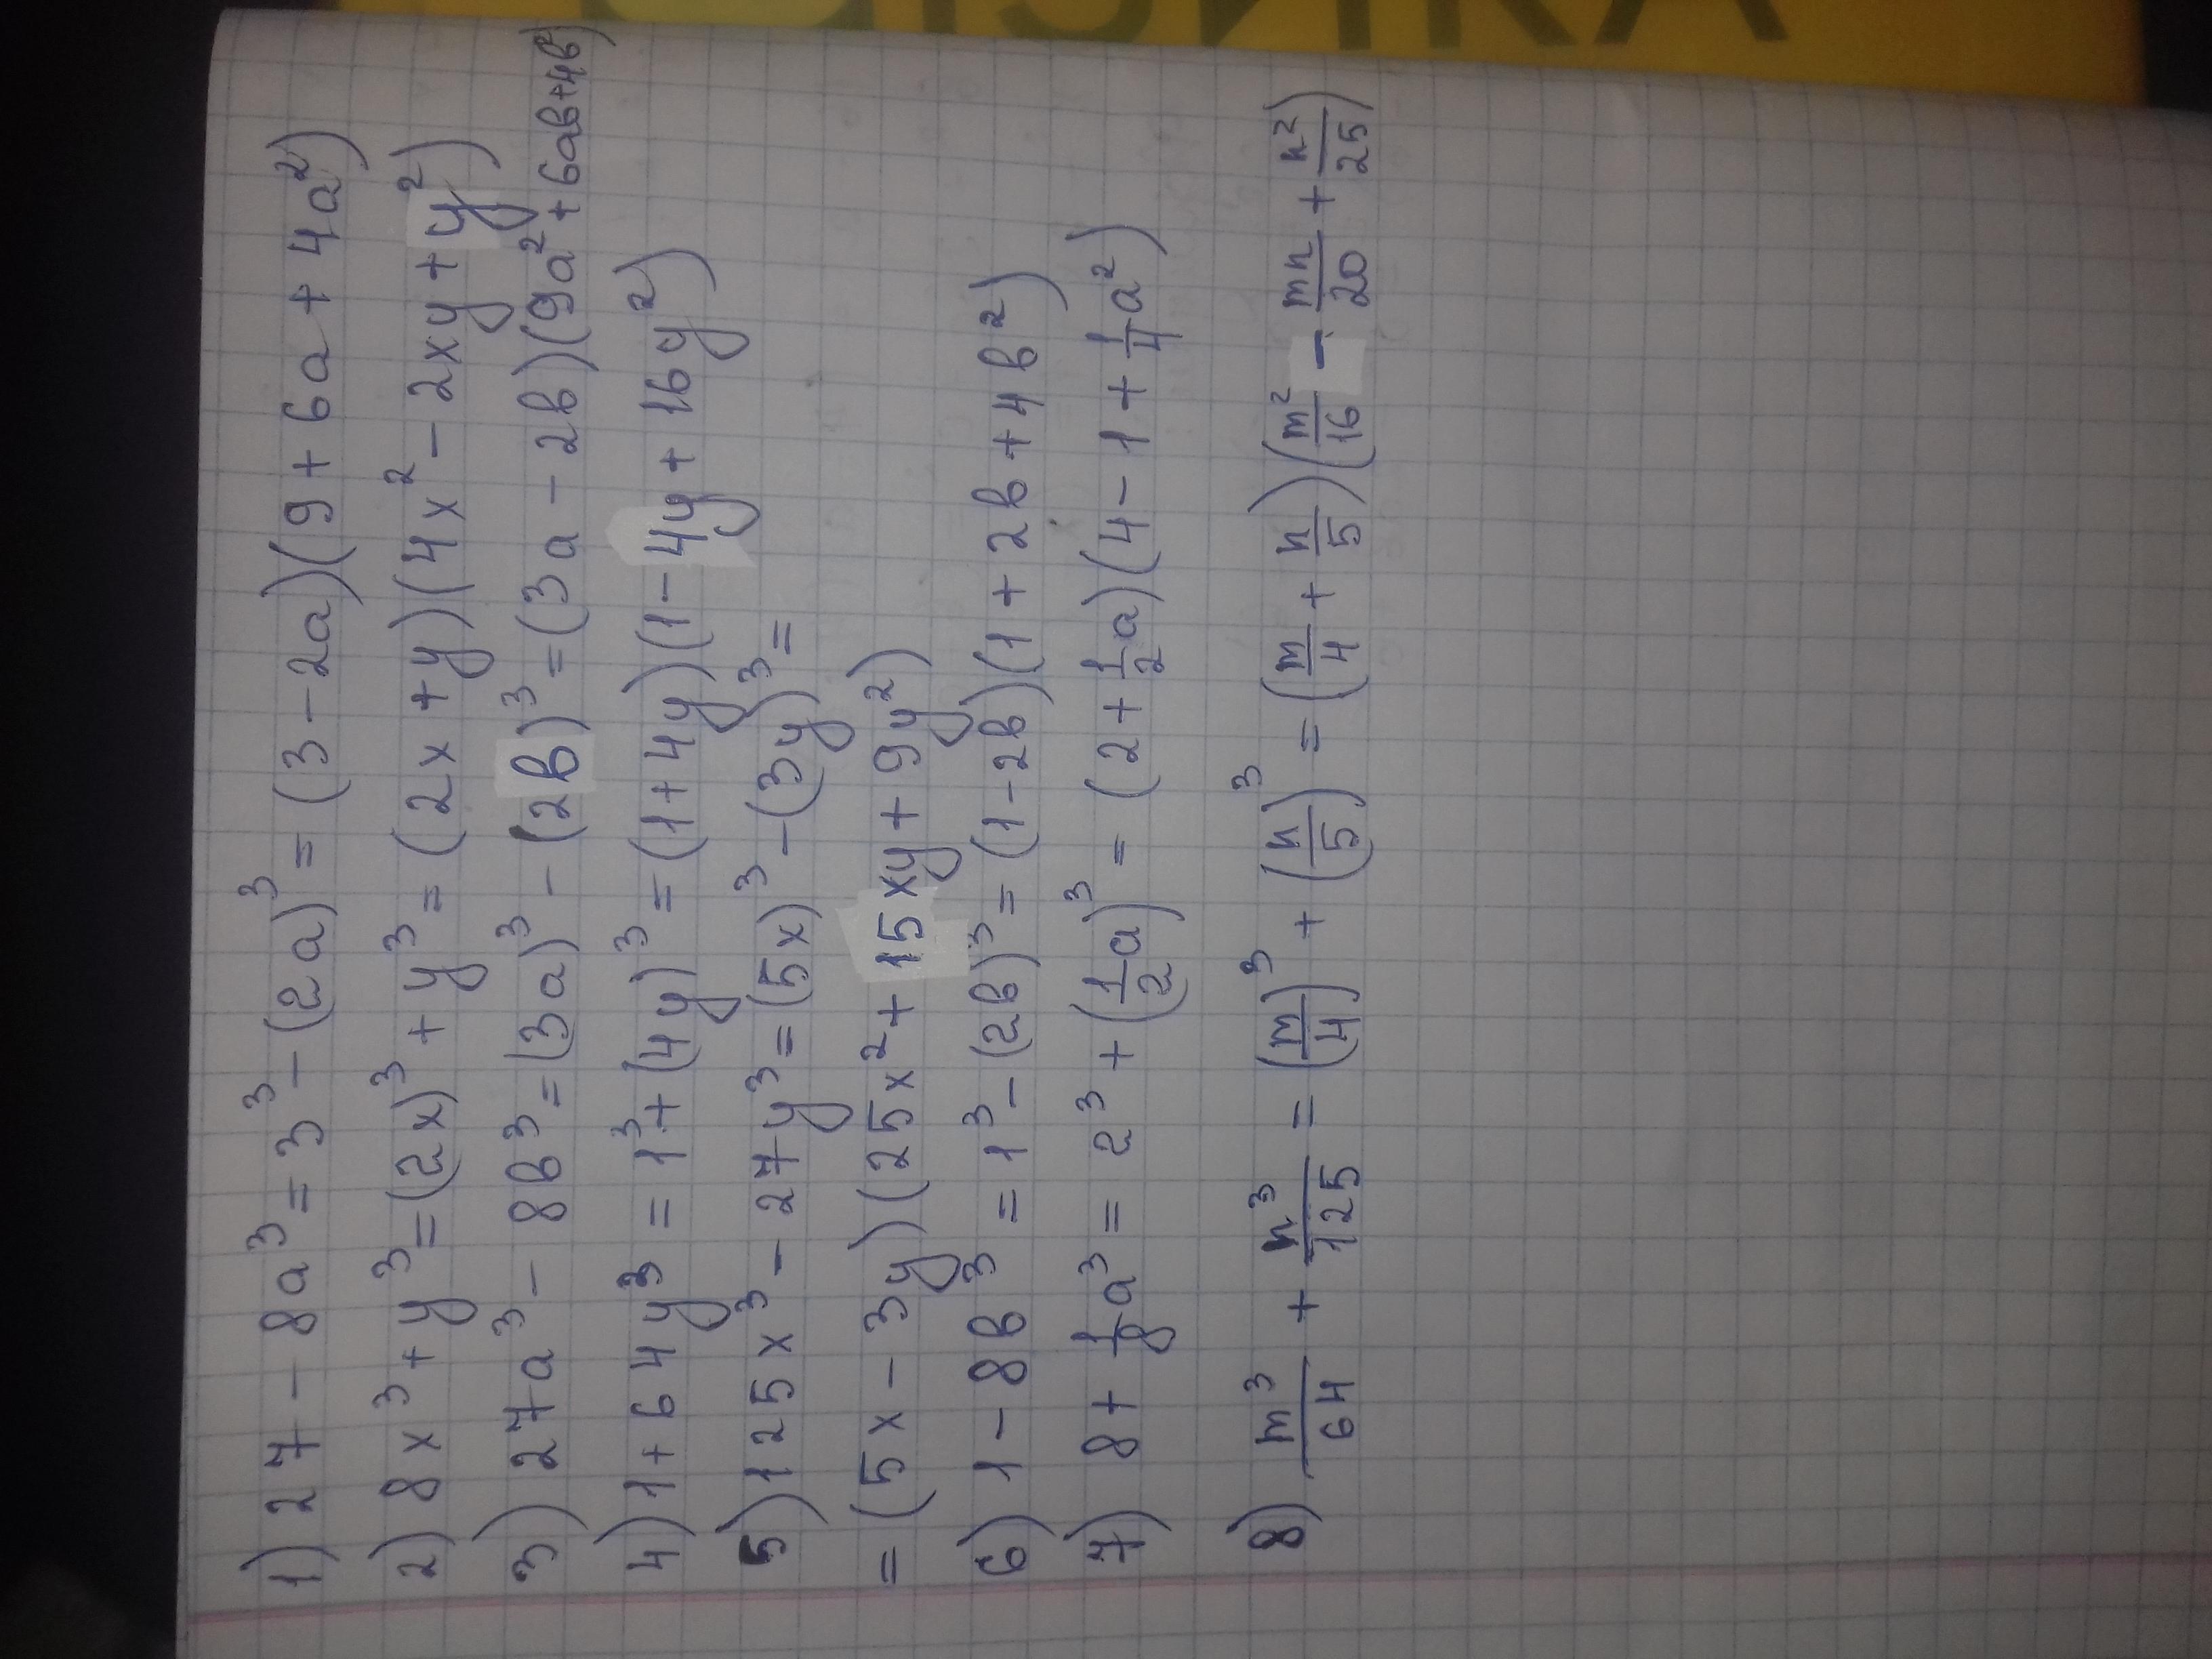 ФІЗИКА
1) 27 - 8a³ = 3³ - (2a)³ = (3 - 2a)(9 + 6a + 4a²)
2) 8x³ + y³ = (2x)³ + y³ = (2x + y)(4x² - 2xy + y²)
3) 27a³ - 8b³ = (3a)³ - (2b)³ = (3a - 2b)(9a² + 6ab + 4b²)
4) 1 + 64y³ = 1³ + (4y)³ = (1 + 4y)(1 - 4y + 16y²)
5) 125x³ - 27y³ = (5x)³ - (3y)³ =
= (5x - 3y)(25x² + 15xy + 9y²)
6) 1 - 8b³ = 1³ - (2b)³ = (1 - 2b)(1 + 2b + 4b²)
7) 8 + 1/8 a³ = 2³ + (1/2 a)³ = (2 + 1/2 a)(4 - 1 + 1/4 a²)
8) m³/64 + n³/125 = (m/4)³ + (n/5)³ = (m/4 + n/5)(m²/16 - mn/20 + n²/25)